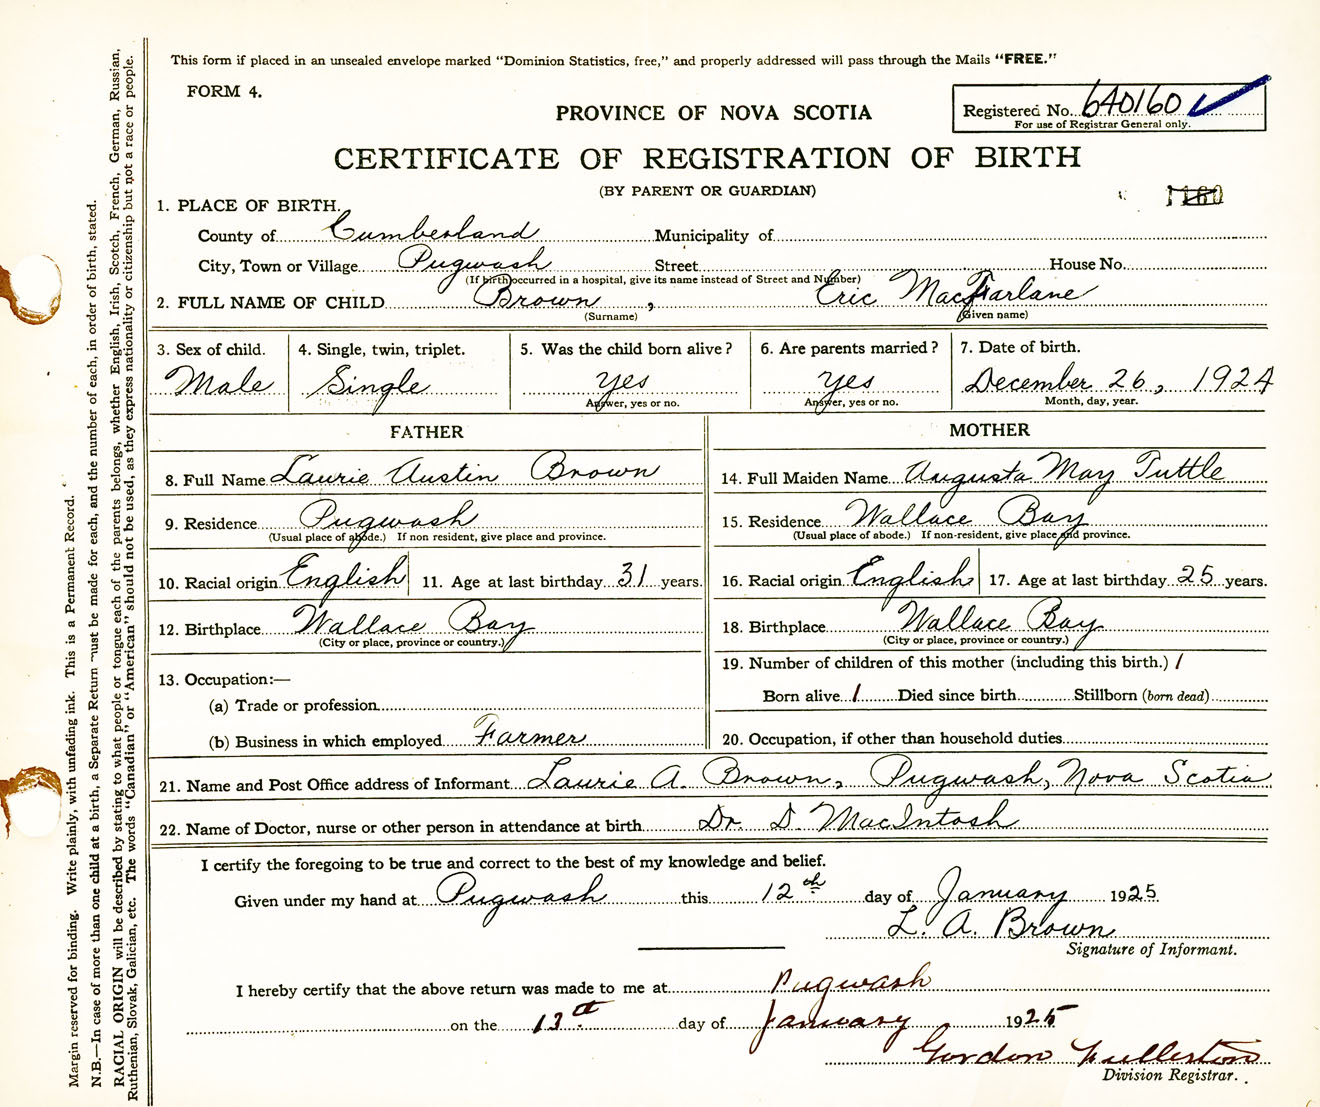 This form if placed in an unsealed envelope marked "Dominion Statistics, free," and properly addressed will pass through the Mails "FREE."
FORM 4.
PROVINCE OF NOVA SCOTIA
Registered No. 640160
For use of Registrar General only.
CERTIFICATE OF REGISTRATION OF BIRTH
(BY PARENT OR GUARDIAN)
1. PLACE OF BIRTH.
County of Cumberland Municipality of
City, Town or Village Pugwash Street House No.
(If birth occurred in a hospital, give its name instead of Street and Number)
2. FULL NAME OF CHILD Brown, Eric MacFarlane
(Surname) (Given name)
3. Sex of child. 4. Single, twin, triplet. 5. Was the child born alive? 6. Are parents married? 7. Date of birth.
Male Single yes yes December 26, 1924
Answer, yes or no. Answer, yes or no. Month, day, year.
FATHER MOTHER
8. Full Name Laurie Austin Brown 14. Full Maiden Name Augusta May Tuttle
9. Residence Pugwash 15. Residence Wallace Bay
(Usual place of abode.) If non resident, give place and province. (Usual place of abode.) If non-resident, give place and province.
10. Racial origin English 11. Age at last birthday 31 years. 16. Racial origin English 17. Age at last birthday 25 years.
12. Birthplace Wallace Bay 18. Birthplace Wallace Bay
(City or place, province or country.) (City or place, province or country.)
19. Number of children of this mother (including this birth.) 1
13. Occupation:—
Born alive 1 Died since birth Stillborn (born dead)
(a) Trade or profession
(b) Business in which employed Farmer 20. Occupation, if other than household duties
21. Name and Post Office address of Informant Laurie A. Brown, Pugwash, Nova Scotia
22. Name of Doctor, nurse or other person in attendance at birth Dr. D. MacIntosh
I certify the foregoing to be true and correct to the best of my knowledge and belief.
Given under my hand at Pugwash this 12th day of January 1925.
L. A. Brown
Signature of Informant.
I hereby certify that the above return was made to me at Pugwash
on the 13th day of January 1925
Gordon Fullerton
Division Registrar.
Margin reserved for binding. Write plainly, with unfading ink. This is a Permanent Record.
N.B.—In case of more than one child at a birth, a Separate Return must be made for each, and the number of each, in order of birth, stated.
RACIAL ORIGIN will be described by stating to what people or tongue each of the parents belongs, whether English, Irish, Scotch, French, German, Russian,
Ruthenian, Slovak, Galician, etc. The words "Canadian" or "American" should not be used, as they express nationality or citizenship but not a race or people.